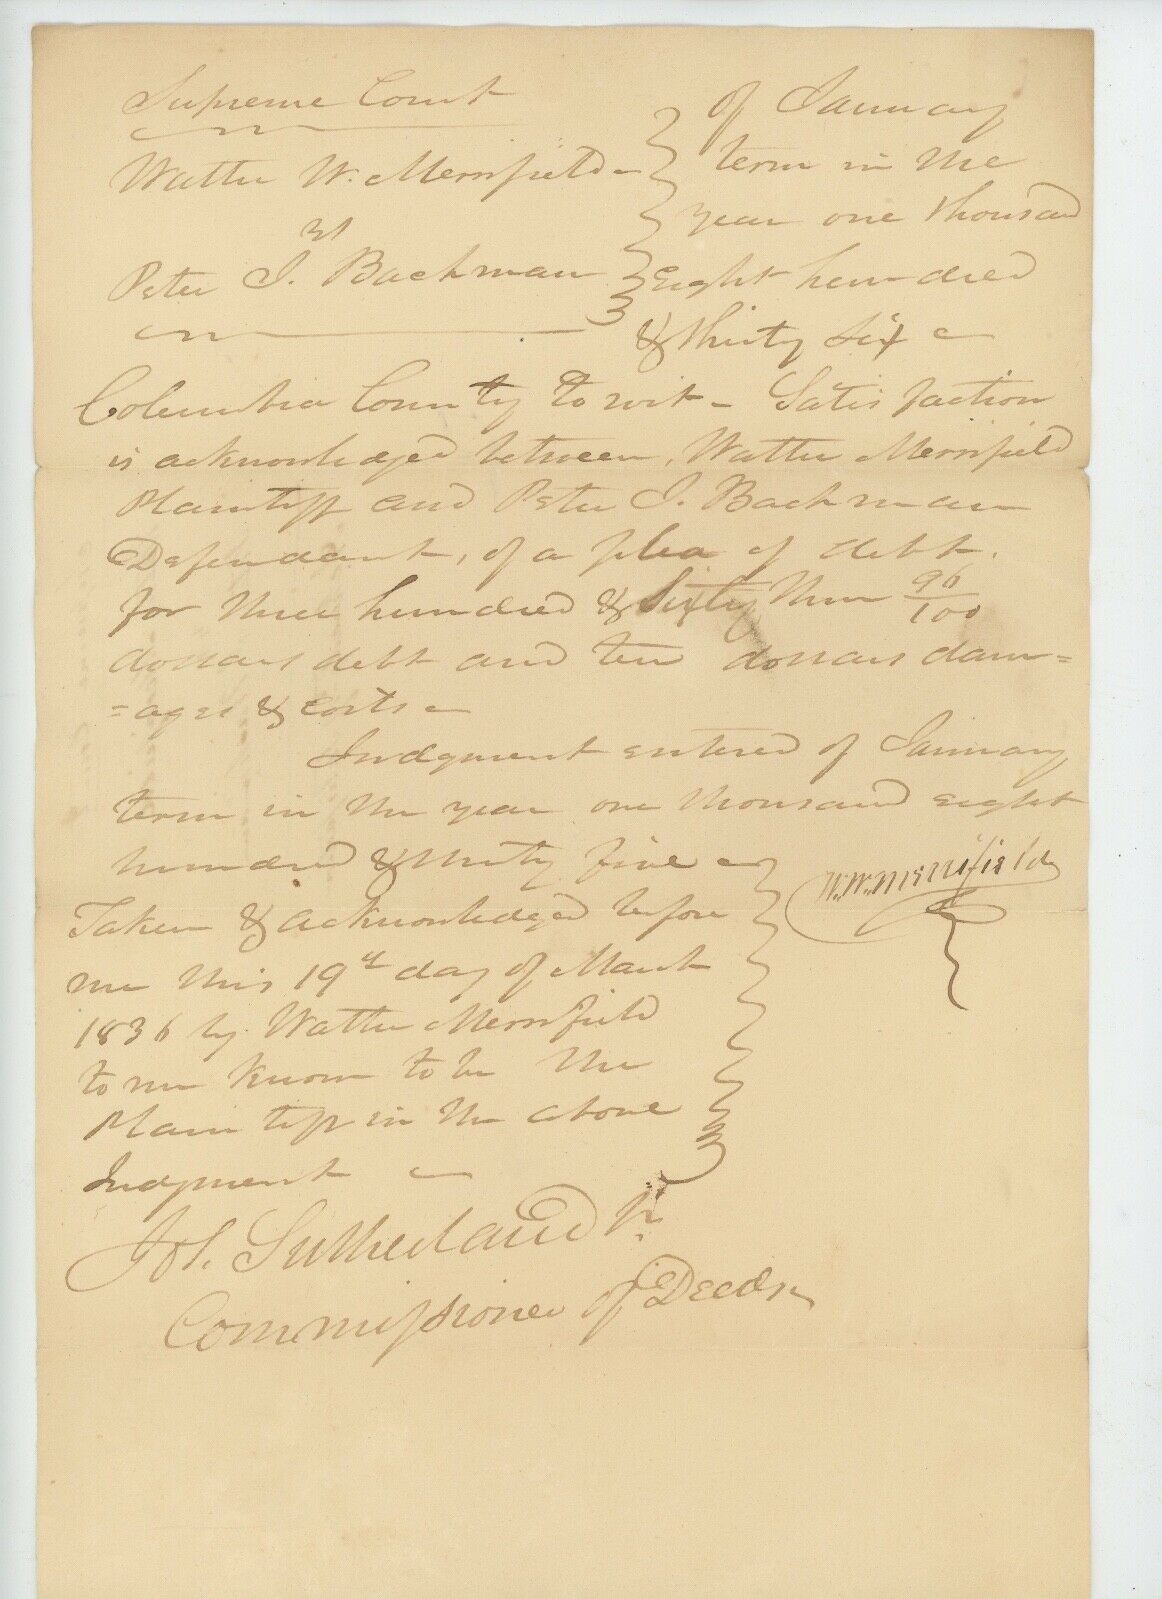 Supreme Court
Walter W. Merrifield
vs
Peter I. Bachman
of January
term in the
year one thousand
Eight hundred
& thirty six
Columbia County to wit - Satisfaction
is acknowledged between, Walter Merrifield
Plaintiff and Peter I. Bachman
Defendant, of a plea of debt.
for three hundred & Sixty 96/100
dollars debt and ten dollars dam=
=ages & costs
Judgment entered of January
term in the year one thousand eight
hundred & thirty five
W. W. Merrifield
Taken & acknowledged before
me this 19th day of March
1836 by Walter Merrifield
to me known to be the
Plaintiff in the above
Judgment
Sutherland Jr.
Commissioner of Deeds